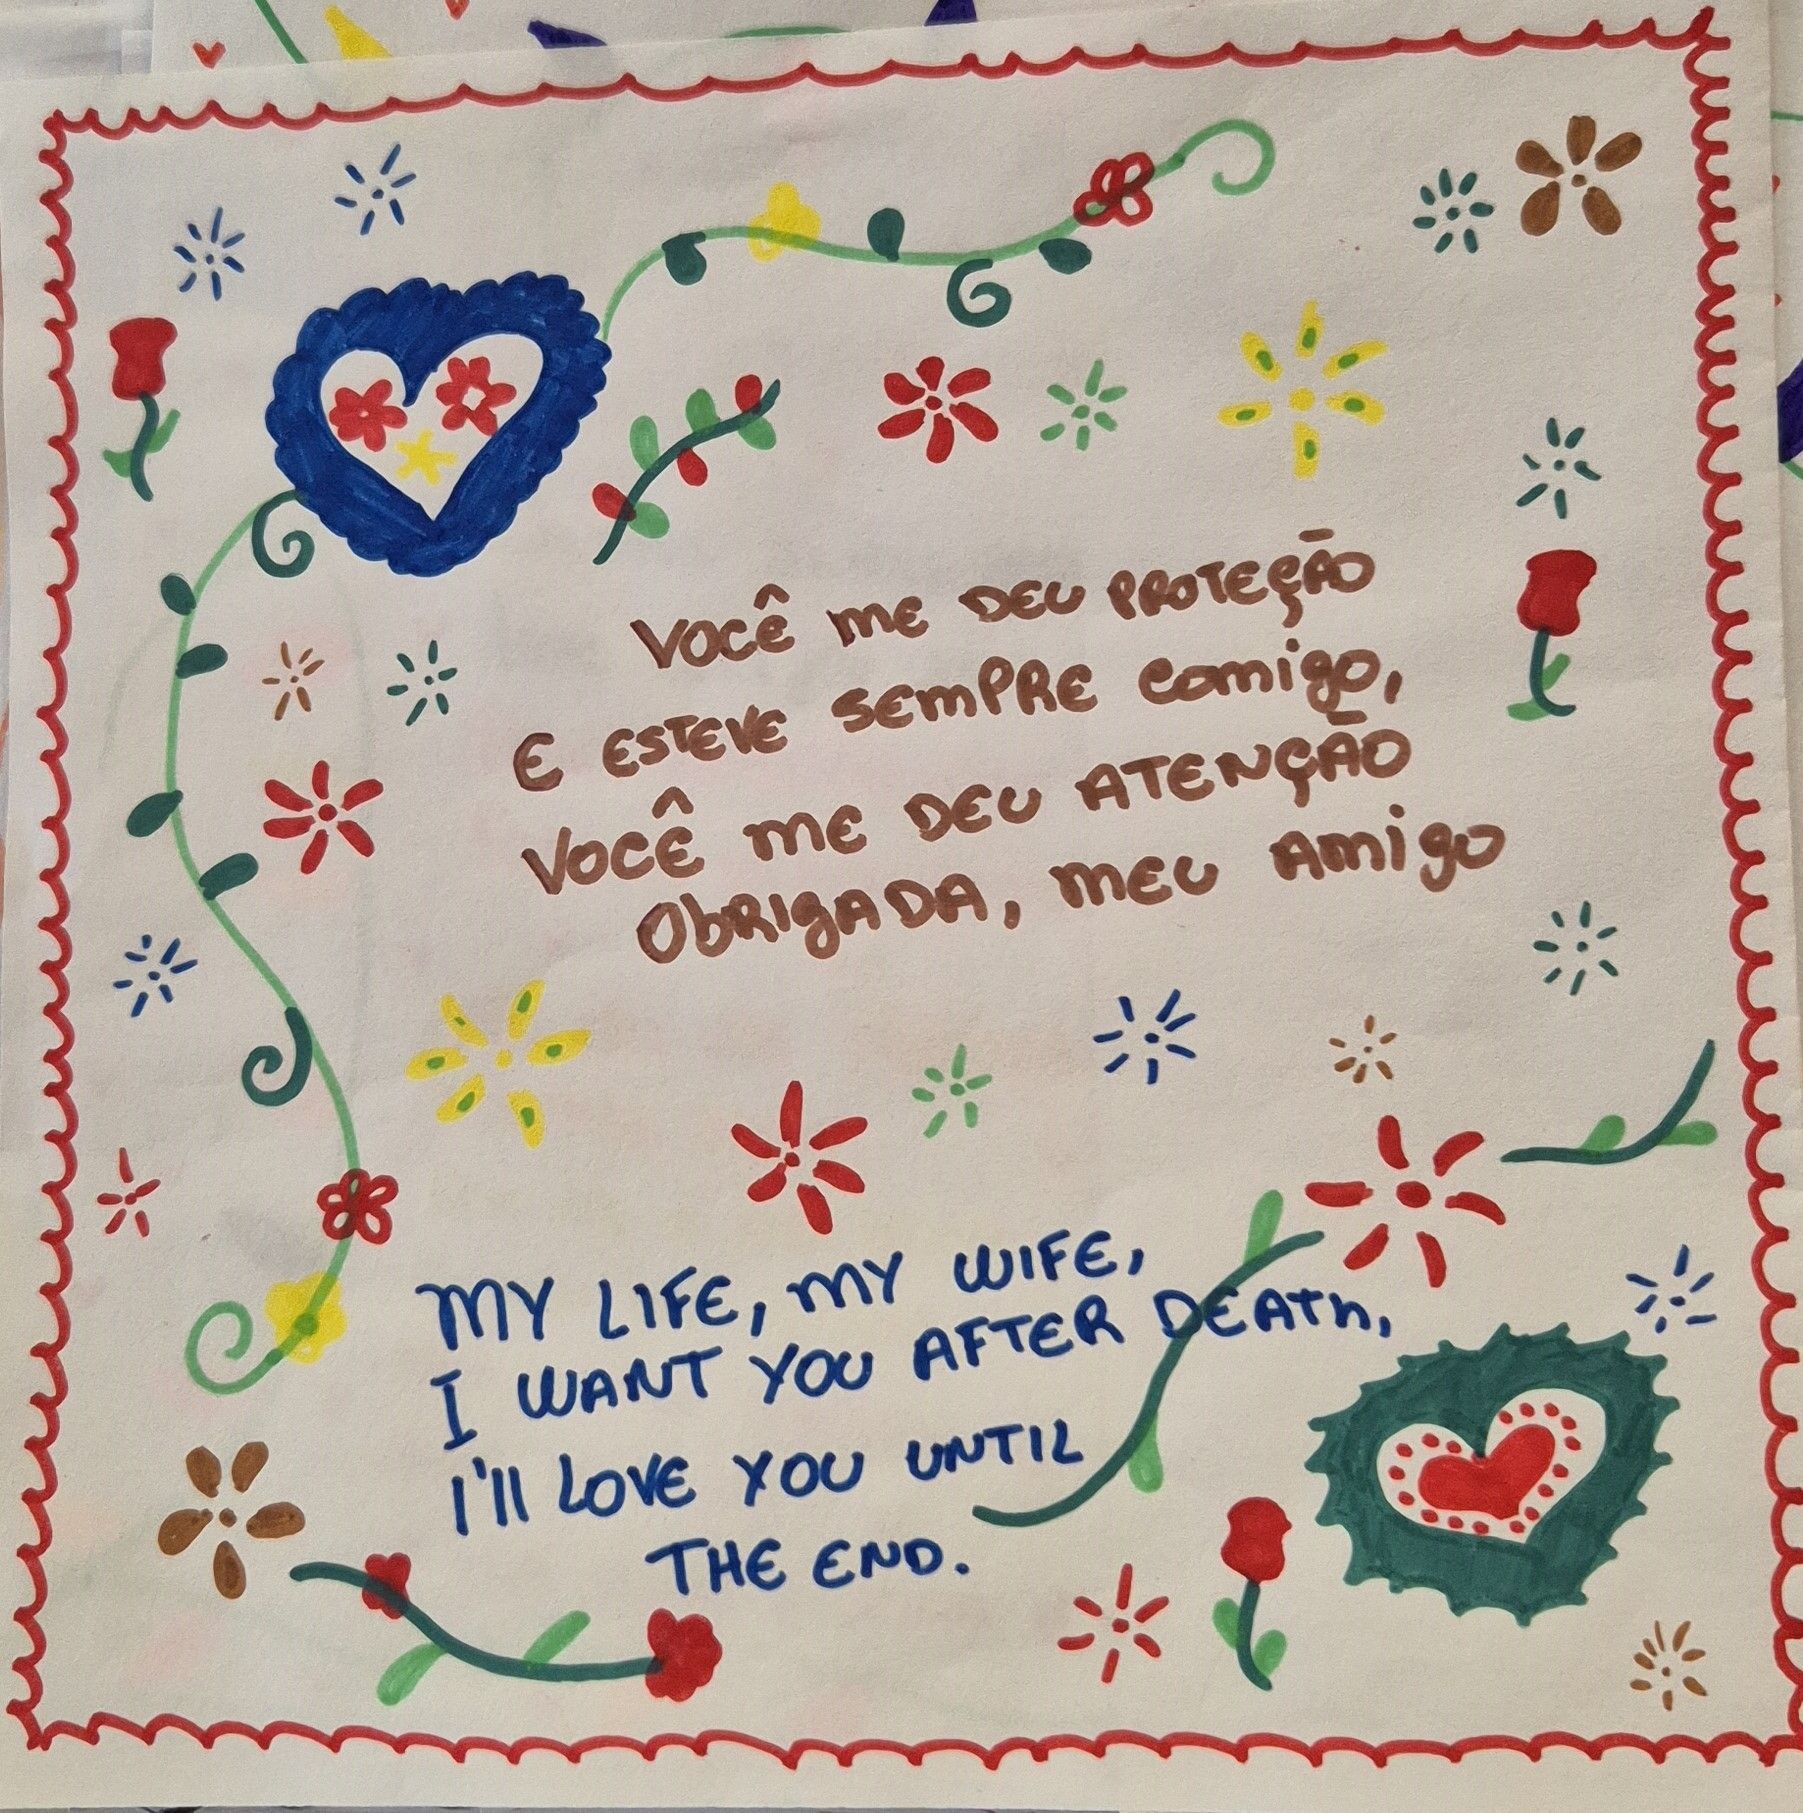 VOCÊ ME DEU PROTEÇÃO
E ESTEVE SEMPRE COMIGO,
VOCÊ ME DEU ATENÇÃO
OBRIGADA, MEU AMIGO
MY LIFE, MY WIFE,
I WANT YOU AFTER DEATH,
I'll LOVE YOU UNTIL
THE END.